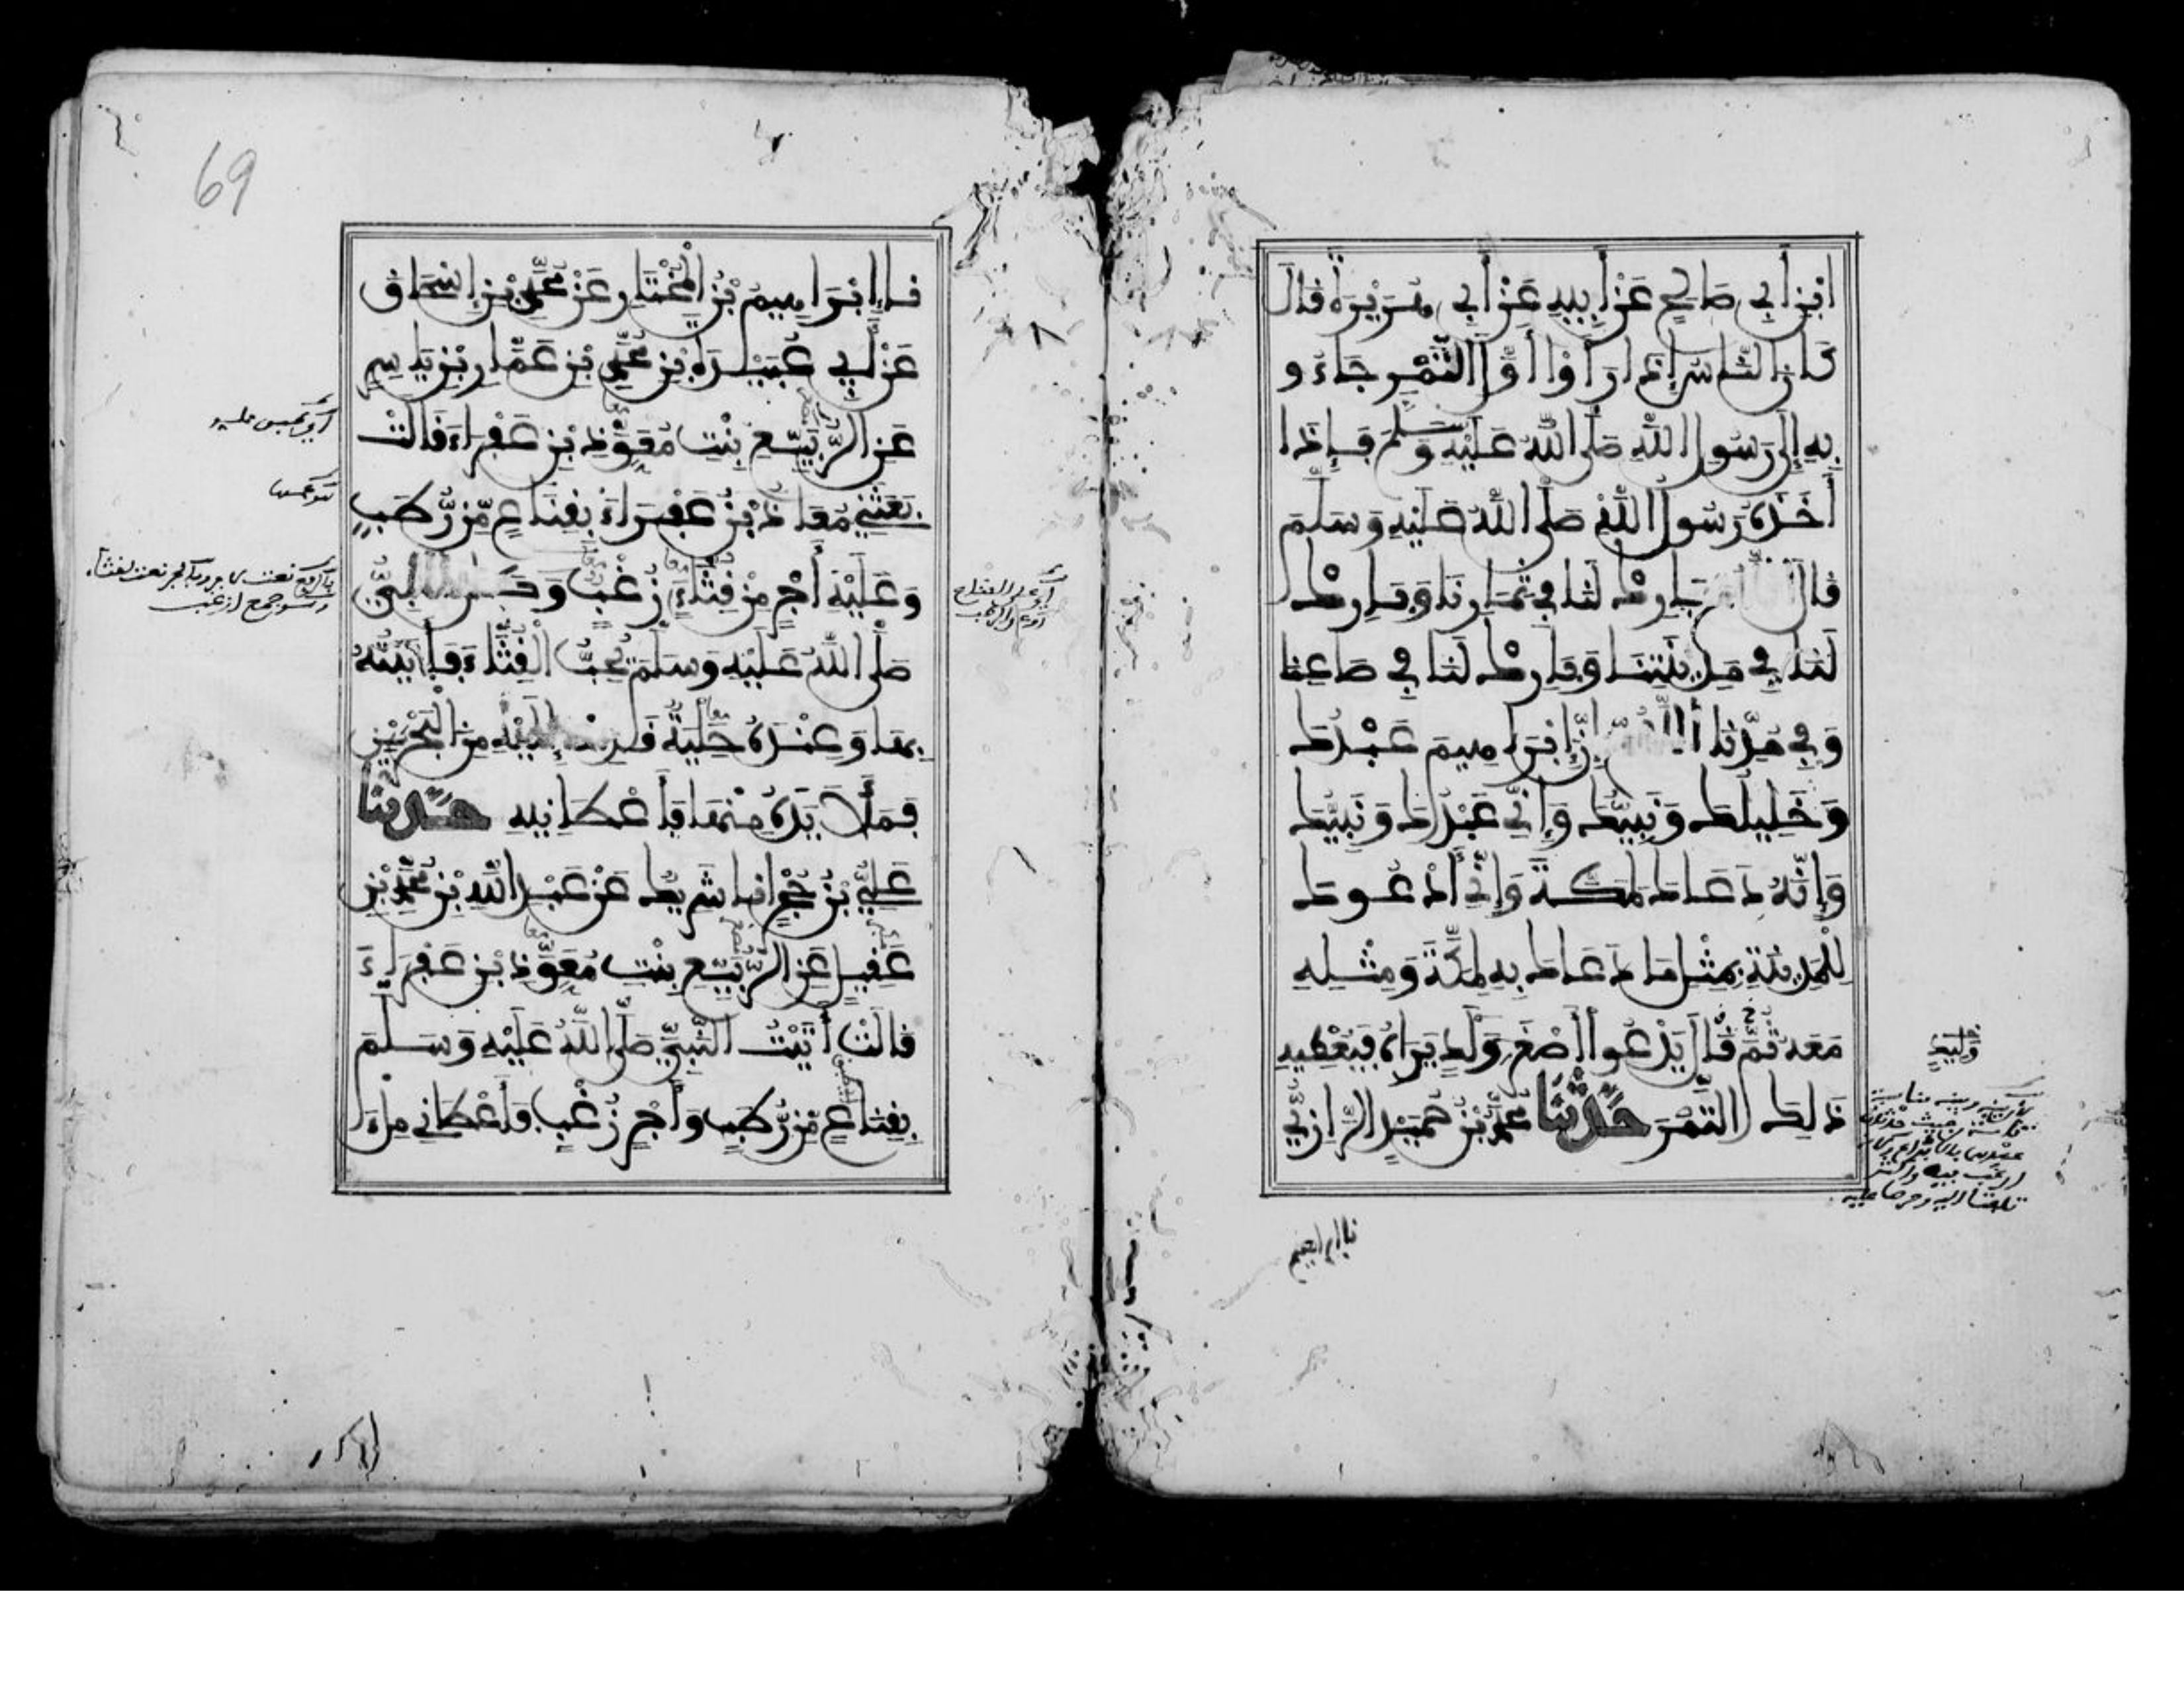 ابْنِ أَبِي صَالِحٍ عَنْ أَبِيهِ عَنْ أَبِي هُرَيْرَةَ قَالَ
كَانَ النَّاسُ إِذَا رَأَوْا أَوَّلَ الثَّمَرِ جَاءُو
بِهِ إِلَى رَسُولِ اللَّهِ صَلَّى اللَّهُ عَلَيْهِ وَسَلَّمَ فَإِذَا
أَخَذَهُ رَسُولُ اللَّهِ صَلَّى اللَّهُ عَلَيْهِ وَسَلَّمَ
قَالَ اللَّهُمَّ بَارِكْ لَنَا فِي ثِمَارِنَا وَبَارِكْ
لَنَا فِي مَدِينَتِنَا وَبَارِكْ لَنَا فِي صَاعِنَا
وَفِي مُدِّنَا اللَّهُمَّ إِنَّ إِبْرَاهِيمَ عَبْدُكَ
وَخَلِيلُكَ وَنَبِيُّكَ وَإِنِّي عَبْدُكَ وَنَبِيُّكَ
وَإِنَّهُ دَعَاكَ لِمَكَّةَ وَإِنِّي أَدْعُوكَ
لِلْمَدِينَةِ بِمِثْلِ مَا دَعَاكَ بِهِ لِمَكَّةَ وَمِثْلِهِ
مَعَهُ ثُمَّ قَالَ يَدْعُوا أَصْغَرَ وَلَدٍ يَرَاهُ فَيُعْطِيهِ
ذَلِكَ الثَّمَرَ حَدَّثَنَا مُحَمَّدُ بْنُ حُمَيْدٍ الرَّازِيُّ
وَلِيدٍ
نا ابراهيم
69
نا إِبْرَاهِيمُ بْنُ الْمُخْتَارِ عَنْ مُحَمَّدِ بْنِ إِسْحَاقَ
عَنْ أَبِي عُبَيْدَةَ بْنِ مُحَمَّدِ بْنِ عَمَّارِ بْنِ يَاسِرٍ
عَنِ الرُّبَيِّعِ بِنْتِ مُعَوِّذِ بْنِ عَفْرَاءَ قَالَتْ
بَعَثَنِي مُعَاذُ بْنُ عَفْرَاءَ بِقِنَاعٍ مِنْ رُطَبٍ
وَعَلَيْهِ أَجْرٍ مِنْ قِثَّاءٍ زُغْبٍ وَكَانَ النَّبِيُّ
صَلَّى اللَّهُ عَلَيْهِ وَسَلَّمَ يُحِبُّ الْقِثَّاءَ فَأَتَيْتُهُ
بِهَا وَعِنْدَهُ حِلْيَةٌ قَدِمَتْ إِلَيْهِ مِنَ الْبَحْرَيْنِ
فَمَلَأَ يَدَهُ مِنْهَا فَأَعْطَانِيهِ حَدَّثَنَا
عَلِيُّ بْنُ حُجْرٍ انا شَرِيكٌ عَنْ عَبْدِ اللَّهِ بْنِ مُحَمَّدِ بْنِ
عَقِيلٍ عَنِ الرُّبَيِّعِ بِنْتِ مُعَوِّذِ بْنِ عَفْرَاءَ
قَالَتْ أَتَيْتُ النَّبِيَّ صَلَّى اللَّهُ عَلَيْهِ وَسَلَّمَ
بِقِنَاعٍ مِنْ رُطَبٍ وَأَجْرٍ زُغْبٍ فَأَعْطَانِي مِلْءَ